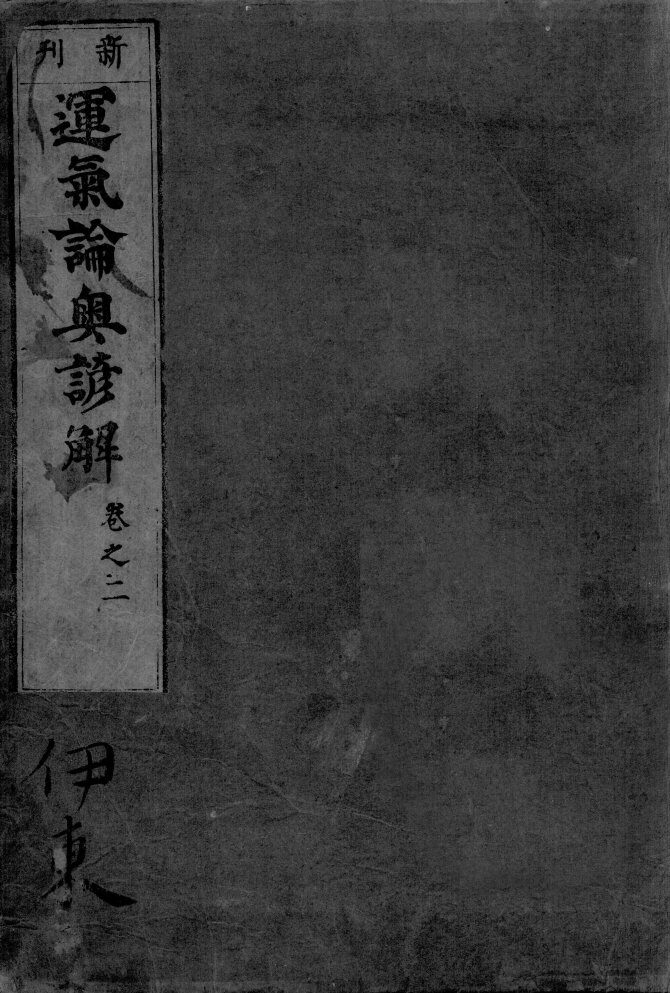 新刊
運氣論奥諺解
卷之二
伊東